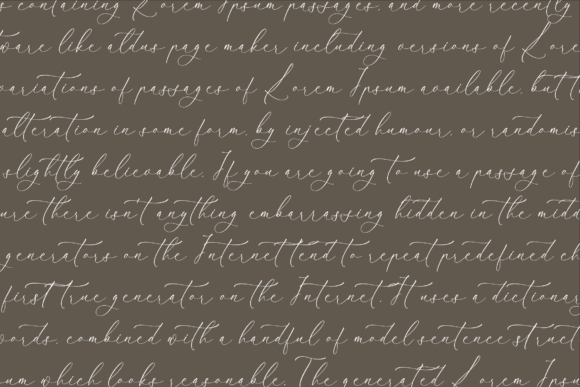 s containing Lorem Ipsum passages, and more recently
ware like aldus page maker including versions of Lore
variations of passages of Lorem Ipsum available, but t
alteration in some form, by injected humour, or randomis
slightly believable. If you are going to use a passage of
ure there isn't anything embarrassing hidden in the midd
generators on the Internet tend to repeat predefined ch
first true generator on the Internet. It uses a dictionary
words, combined with a handful of model sentence struct
um which looks reasonable. The generated Lorem Ipsu